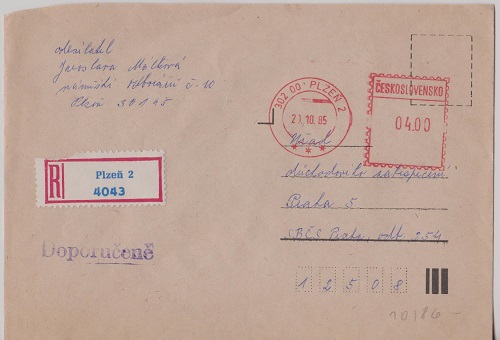 odesílatel
Jaroslava
náměstí č. 10
Plzeň 301 45
302 00 PLZEŇ 2
21.10.85
ČESKOSLOVENSKO
04.00
R
Plzeň 2
4043
Úřad
důchodového zabezpečení
Praha 5
SBČS Praha, odb. 254
Doporučeně
1 2 5 0 8
10/86 -